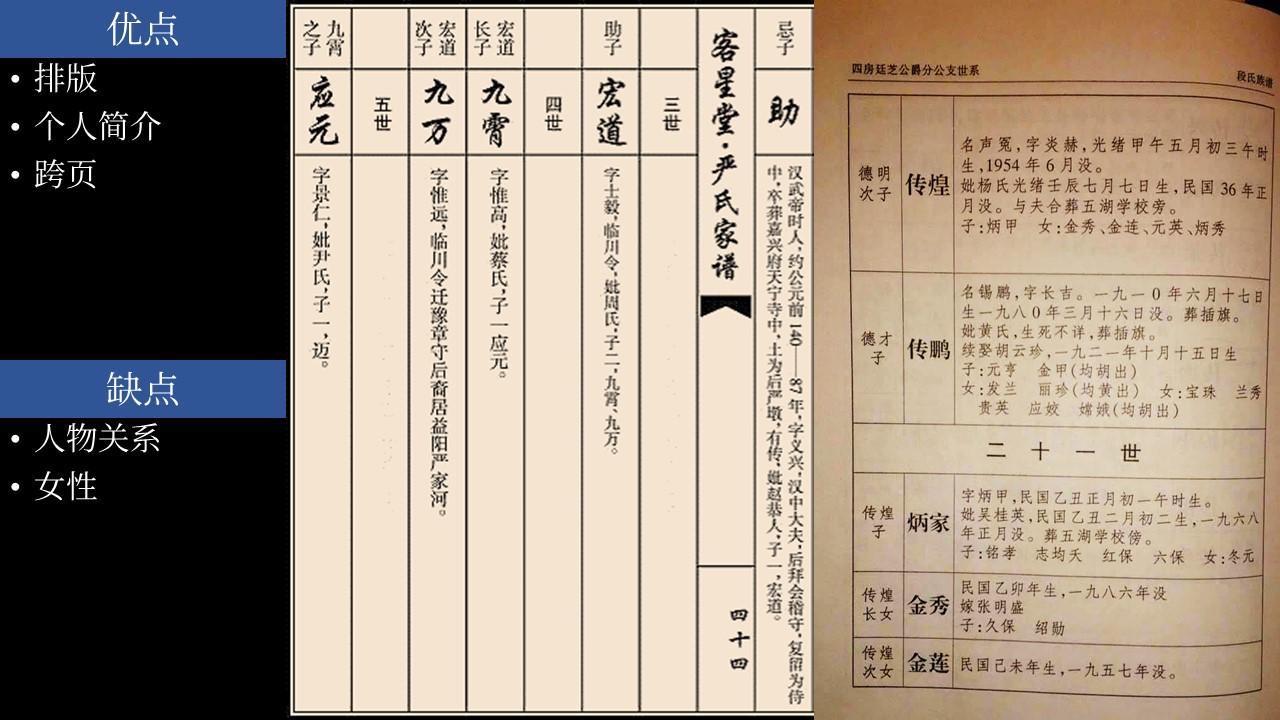 优点
• 排版
• 个人简介
• 跨页
缺点
• 人物关系
• 女性
忌子
助
汉武帝时人，约公元前140——87年，字义兴，汉中大夫，后拜会稽守，复留为侍
中，卒葬嘉兴府天宁寺中，土为后严墩，有传，妣赵恭人，子一，宏道。
客星堂·严氏家谱
四十四
三世
助子
宏道
字士毅，临川令，妣周氏，子二，九霄、九万。
四世
宏道
长子
九霄
字惟高，妣蔡氏，子一应元。
宏道
次子
九万
字惟远，临川令迁豫章守后裔居益阳严家河。
五世
九霄
之子
应元
字景仁，妣尹氏，子一，迈。
四房廷芝公爵分公支世系
段氏族谱
德明
次子
传煌
名声冤，字炎赫，光绪甲午五月初三午时
生，1954年6月没。
妣杨氏光绪壬辰七月七日生，民国36年正
月没。与夫合葬五湖学校旁。
子：炳甲 女：金秀、金连、元英、炳秀
德才
子
传鹏
名锡鹏，字长吉。一九一0年六月十七日
生一九八0年三月十六日没。葬插旗。
妣黄氏，生死不详，葬插旗。
续娶胡云珍，一九二一年十月十五日生
子：元亨 金甲(均胡出)
女：发兰 丽珍(均黄出) 女：宝珠 兰秀
贵英 应姣 嫦娥(均胡出)
二十一世
传煌
子
炳家
字炳甲，民国乙丑正月初一午时生。
妣吴桂英，民国乙丑二月初二生，一九六八
年正月没。葬五湖学校傍。
子：铭孝 志均夭 红保 六保 女：冬元
传煌
长女
金秀
民国乙卯年生，一九八六年没
嫁张明盛
子：久保 绍勋
传煌
次女
金莲
民国己未年生，一九五七年没。